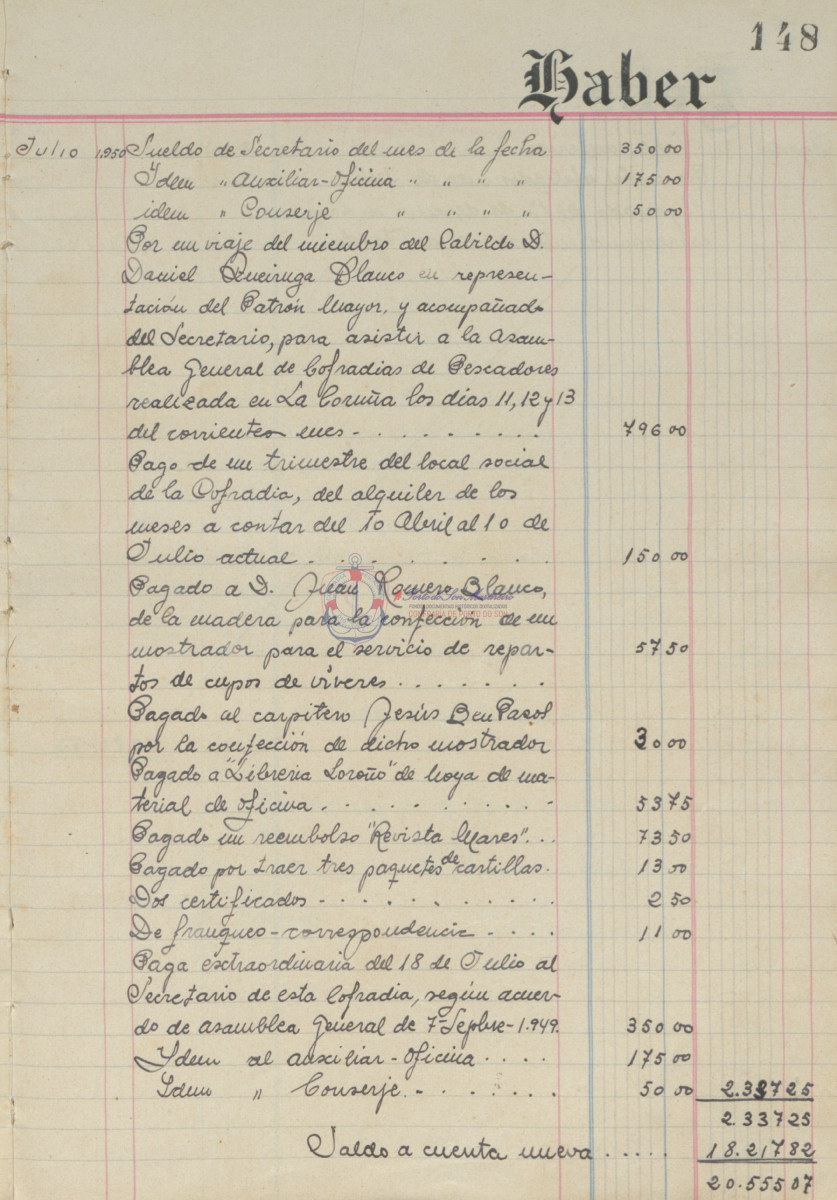 148
Haber
Julio 1.950 Sueldo de Secretario del mes de la fecha 350 00
Idem " Auxiliar-Oficina " " " " 175 00
idem " Conserje " " " " 50 00
Por un viaje del miembro del Cabildo D.
Daniel Queiruga Blanco en represen-
tación del Patrón Mayor, y acompañado
del Secretario, para asistir a la Asam-
blea General de Cofradias de Pescadores
realizada en La Coruña los dias 11, 12 y 13
del corrientes mes - . . . . . . . . . 796 00
Pago de un trimestre del local social
de la Cofradia, del alquiler de los
meses a contar del 1o Abril al 1o de
Julio actual . . . . . . . . . . 150 00
Pagado a D. Juan Romero Blanco,
de la madera para la confección de un
mostrador para el servicio de repar- 57 50
tos de cupos de viveres . . . . . . .
Pagado al carpitero Jesús Ben Pazos
por la confección de dicho mostrador 30 00
Pagado a "Libreria Loroño" de Noya de ma-
terial de oficina . . . . . . . . . . - 53 75
Pagado un reembolso "Revista Mares" . . . 73 50
Pagado por traer tres paquetes de cartillas . 13 00
Dos certificados - . . . . . . . . . . 2 50
De franqueo-correspondencia - . . . . 11 00
Paga extraordinaria del 18 de Julio al
Secretario de esta Cofradia, según acuer-
do de asamblea General de 7-Sepbre-1.949. 350 00
Ydem al auxiliar-oficina . . . . 175 00
Idem " Conserje - . . . . . . . 50 00 2.337 25
2.337 25
Saldo a cuenta nueva . . . . . 18.217 82
20.555 07